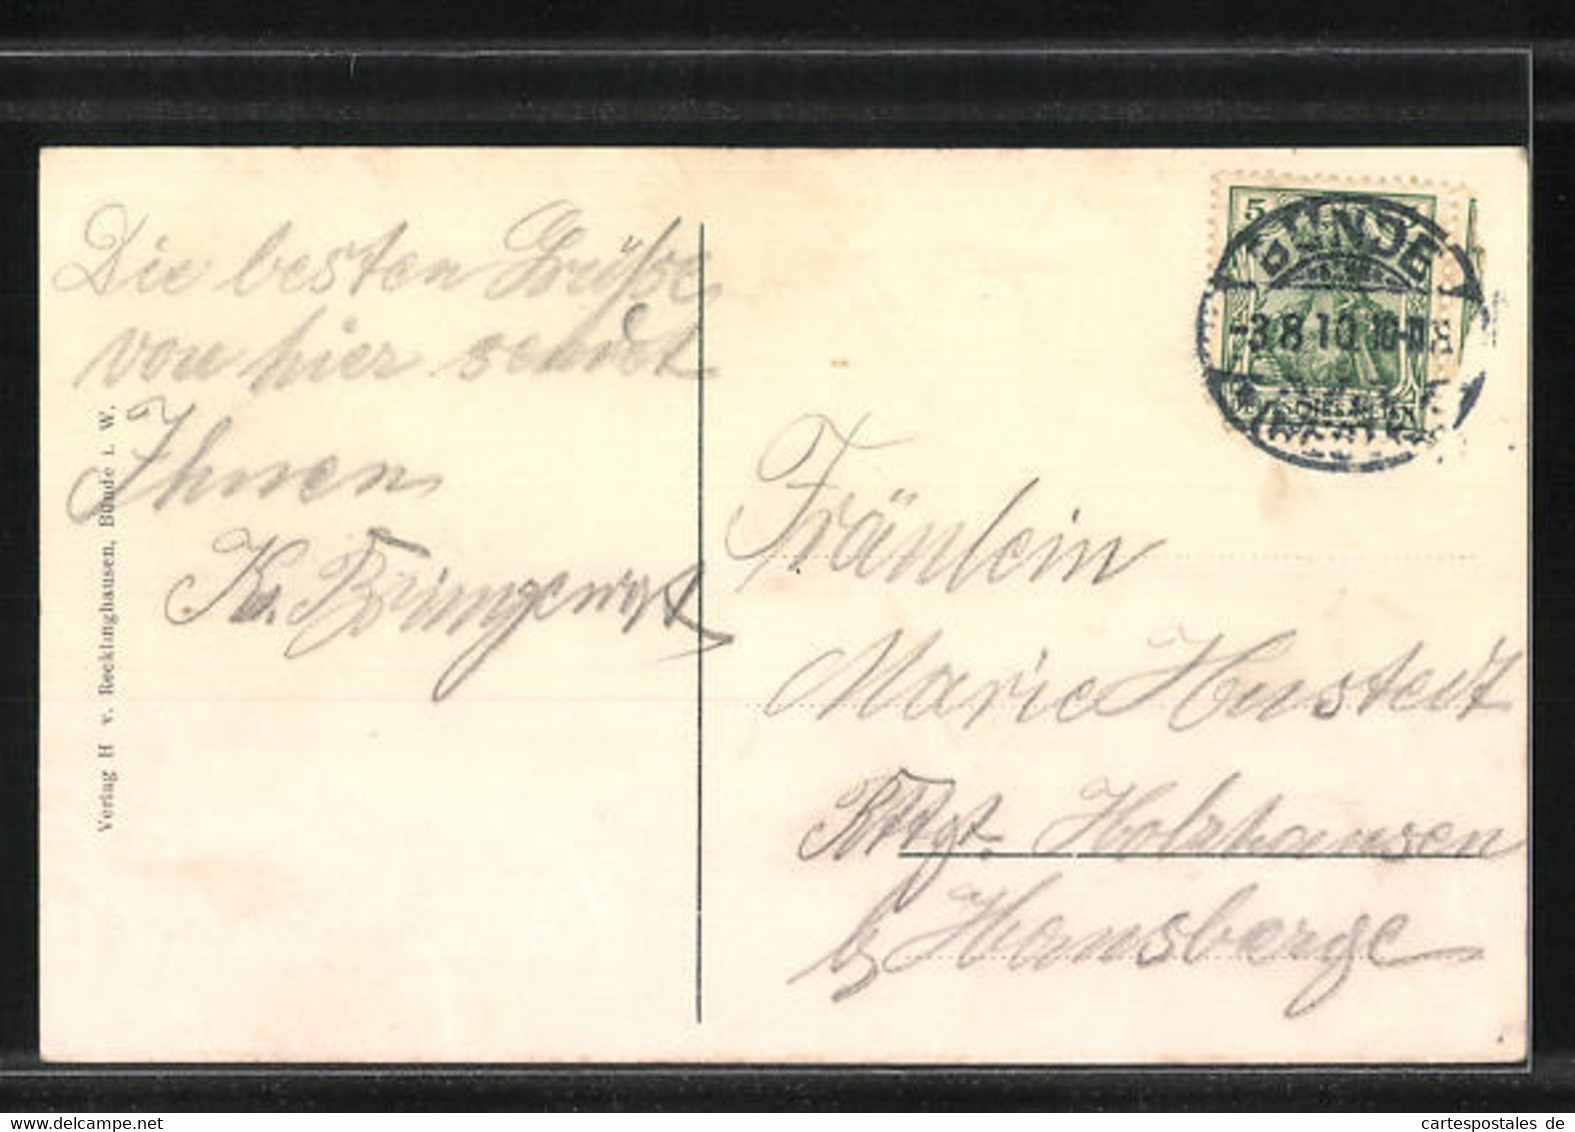 Die besten Grüße
von hier sendet
Ihnen
Verlag H v. Recklinghausen, Bünde i. W.
5
BÜNDE
-3.8.10.10-11
Fräulein
Marie Hustedt
Holzhausen
b/ Hausberge
www.delcampe.net
cartespostales de